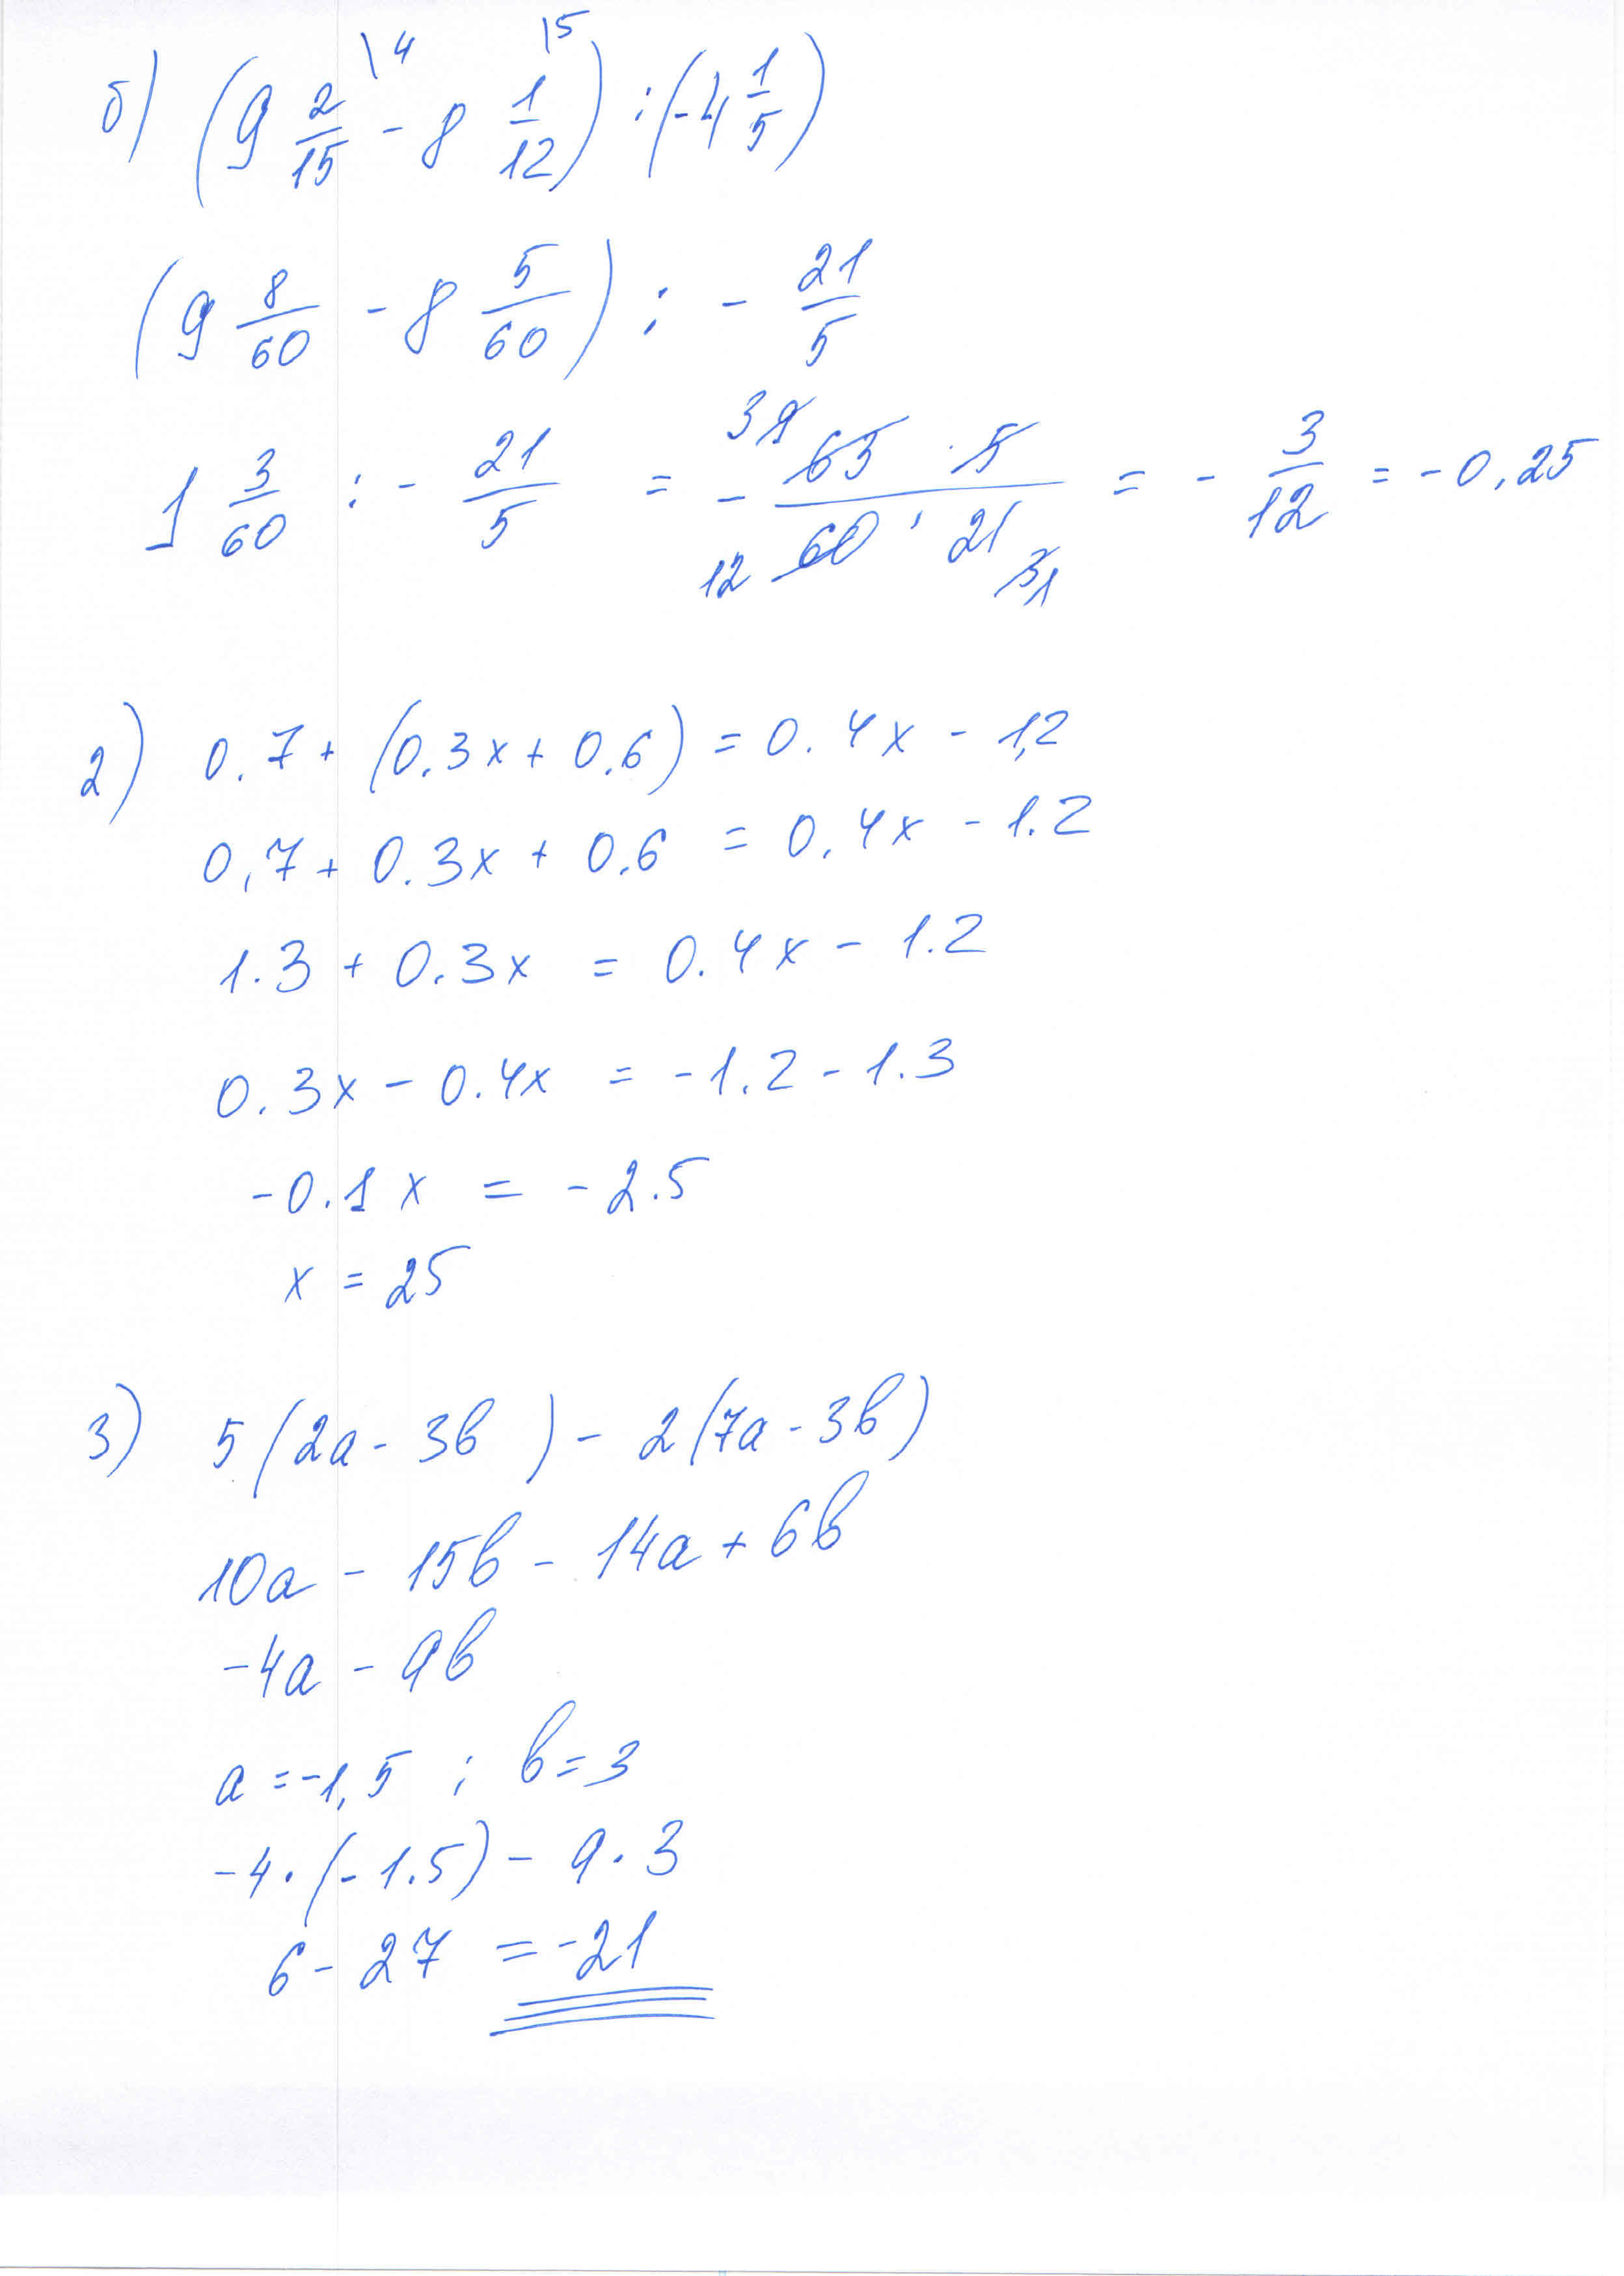 б) (9 2/15 \4 - 8 1/12 \5) : (-4 1/5)
(9 8/60 - 8 5/60) : - 21/5
1 3/60 : - 21/5 = - 63 · 5 / 60 · 21 = - 3/12 = -0,25
2) 0.7 + (0.3x + 0.6) = 0.4x - 1,2
0,7 + 0.3x + 0.6 = 0.4x - 1.2
1.3 + 0.3x = 0.4x - 1.2
0.3x - 0.4x = -1.2 - 1.3
-0.1x = -2.5
x = 25
3) 5(2a - 3b) - 2(7a - 3b)
10a - 15b - 14a + 6b
-4a - 9b
a = -1,5 ; b = 3
-4 · (-1.5) - 9 · 3
6 - 27 = -21